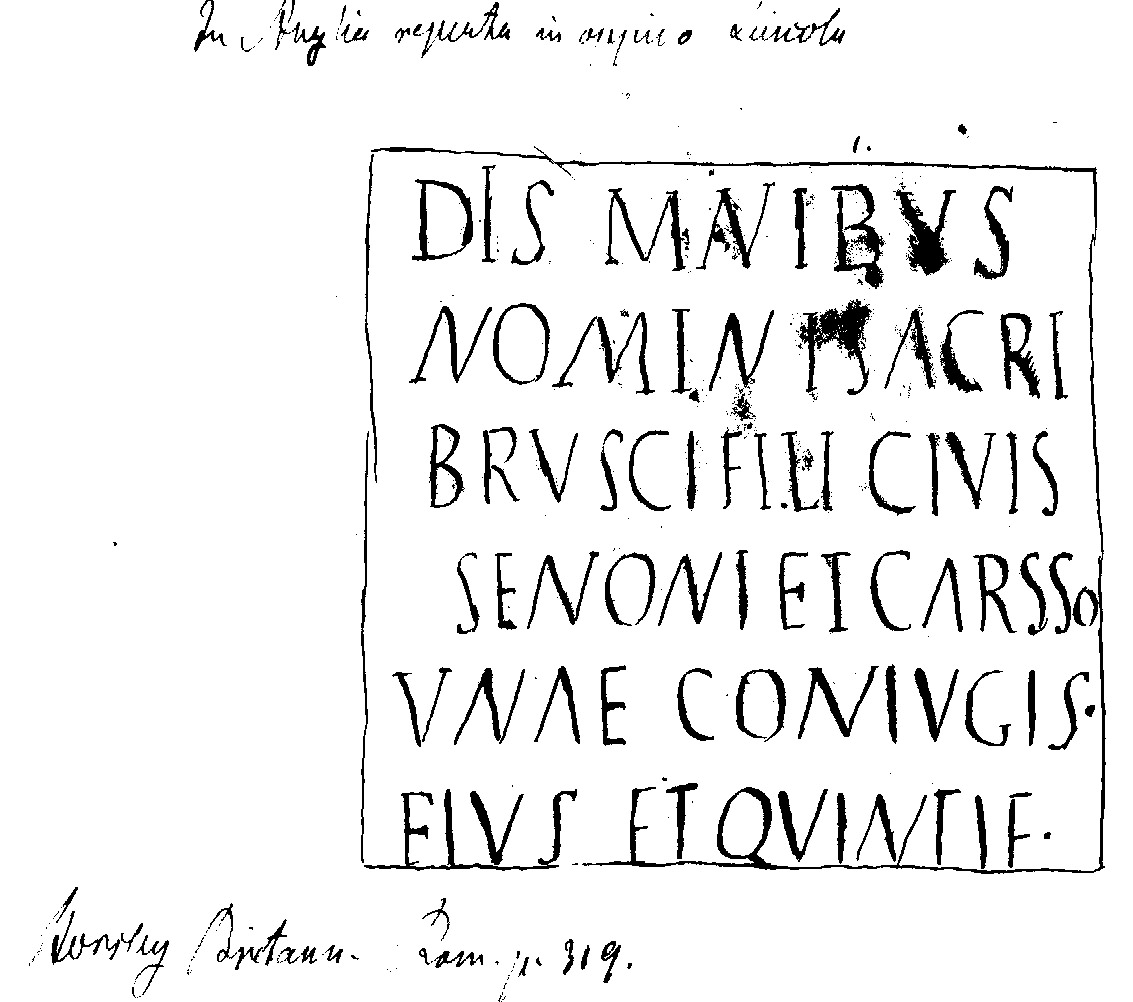 In Anglia reperta in oppido Lincoln
DIS MANIBVS
NOMINI SACRI
BRVSCI FILI CIVIS
SENONI ET CARSSO
VNAE CONIVGIS·
EIVS ET QVINTI F·
Horsley Britann. Rom. p. 319.